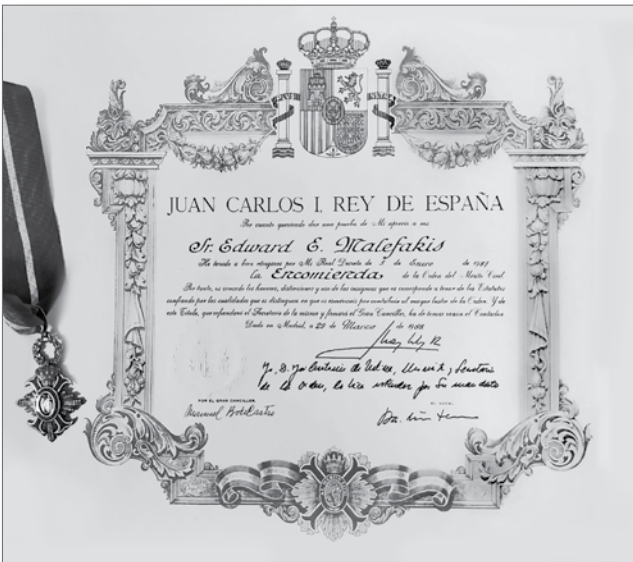 JUAN CARLOS I, REY DE ESPAÑA
Por cuanto queriendo dar una prueba de Mi aprecio a vos
Sr. Edward E. Malefakis
He tenido a bien otorgaros por Mi Real Decreto de 5 de Enero de 1987
la Encomienda de la Orden del Mérito Civil
Por tanto, os concedo los honores, distinciones y uso de las insignias que os corresponde a tenor de los Estatutos
confiando por las cualidades que os distinguen en que os esmeraréis por contribuir al mayor lustre de la Orden. Y de
este Título, que refrendará el Secretario de la misma y firmará el Gran Canciller, ha de tomar razón el Contador.
Dado en Madrid, a 29 de Marzo de 1988
Juan Carlos R
Yo, D. de
de la Orden, lo hice por Su mandato
POR EL GRAN CANCILLER,
Manuel